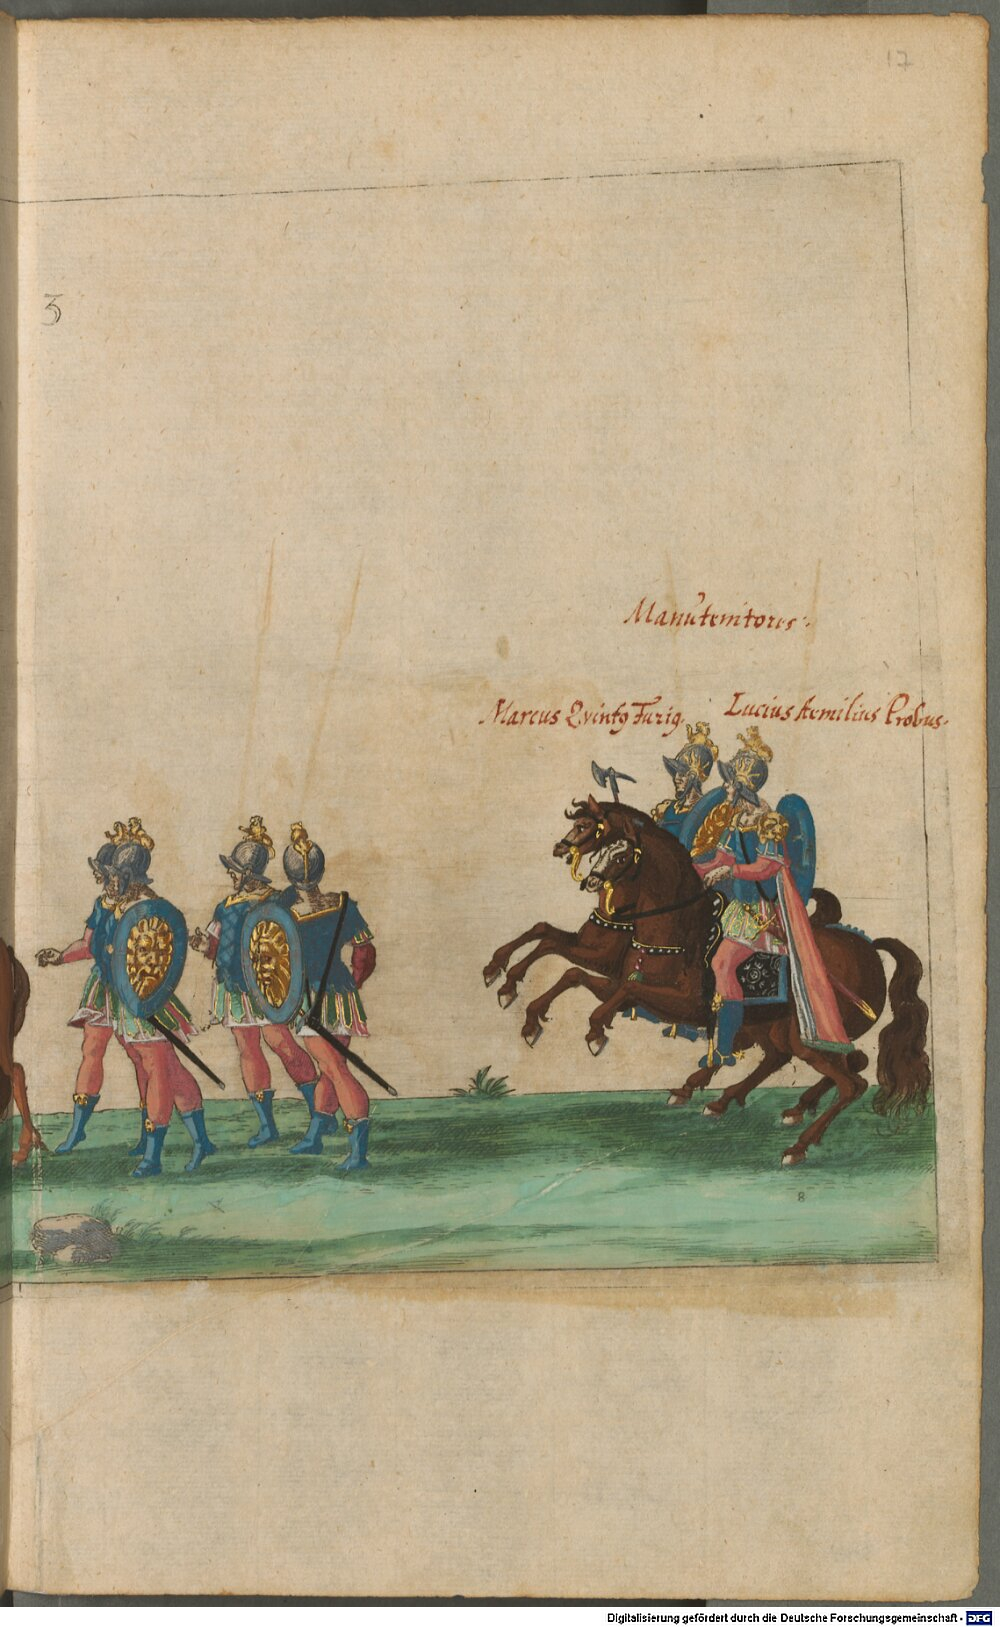 17
3
Manůtenitores.
Marcus Qvintꝯ Furiꝯ. Lucius Aemilius Probus.
8
Digitalisierung gefördert durch die Deutsche Forschungsgemeinschaft - DFG